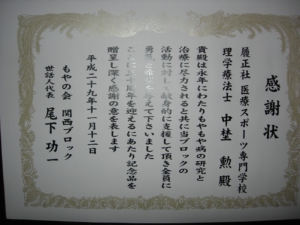 感謝状
履正社 医療スポーツ専門学校
理学療法士 中埜 勲 殿
貴殿は永年にわたりもやもや病の研究と
治療に尽力されると共に当ブロックの
活動に対し献身的に支援して頂き会員に
勇気と を与えて下さいました
ここに 十周年を迎えるにあたり記念品を
贈呈し深く感謝の意を表します
平成二十九年十一月十二日
もやの会 関西ブロック
世話人代表 尾下 功一